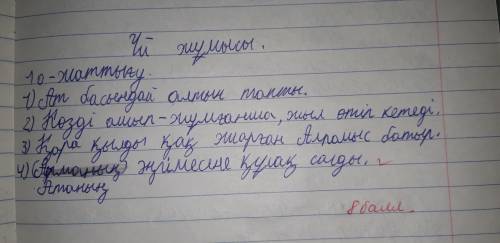 Үй жұмысы.
10-жаттығу.
1) Ат басындай алтын тапты.
2) Көзді ашып-жұмғанша, жыл өтіп кетеді.
3) Қара қылды қақ жарған Алпамыс батыр.
4) (Арманың) әңгімесіне құлақ салды.
Атаның
8 балл.